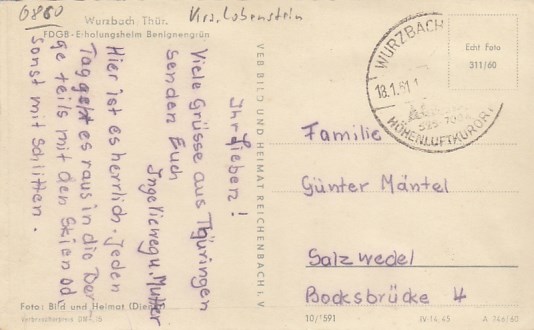 0860
Krs. Lobenstein
Wurzbach Thür.
FDGB-Erholungsheim Benignengrün
Ihr Lieben!
Viele Grüsse aus Thüringen
senden Euch
Ingelie u. Mutter
Hier ist es herrlich. Jeden
Tag geht es raus in die Ber-
ge teils mit den Skien od.
sonst mit Schlitten.
Foto: Bild und Heimat
VEB BILD UND HEIMAT REICHENBACH I. V
WURZBACH
18.1.61
HÖHENLUFTKURORT
Echt Foto
311/60
Familie
Günter Mäntel
Salzwedel
Bocksbrücke 4
10/1591
IV-14-45
A 746/60